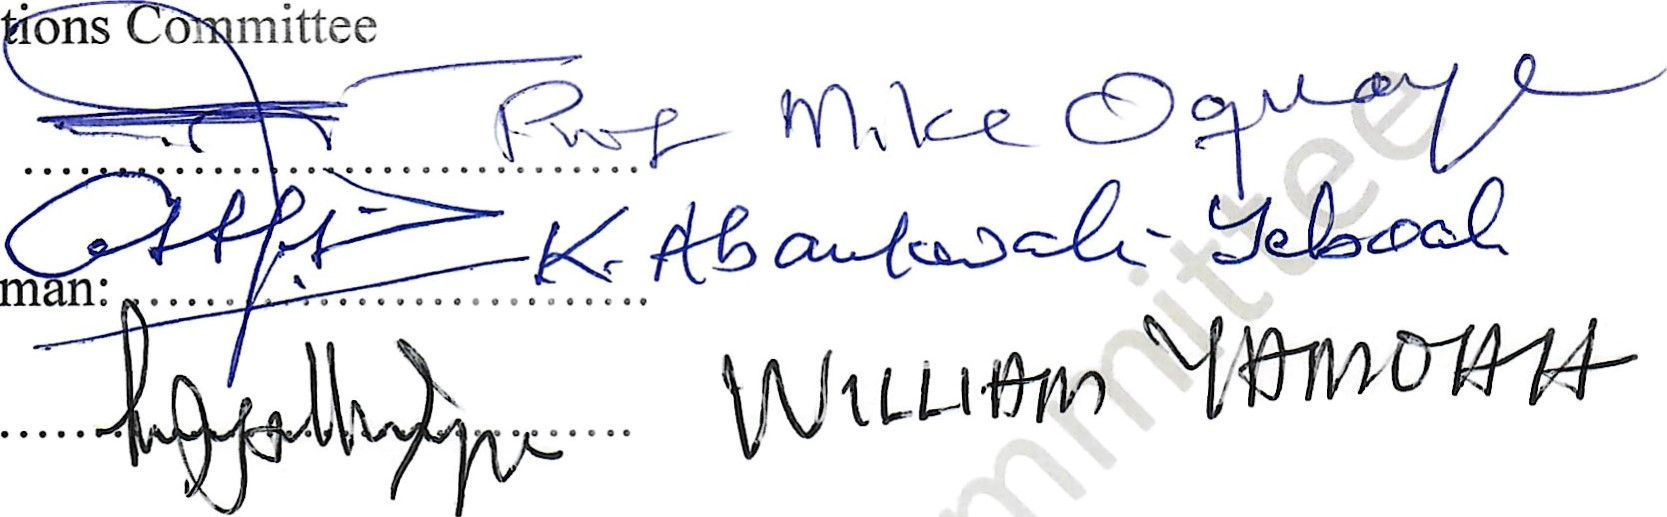 tions Committee
Prof Mike Oquaye
K. Abankwah Yeboah
man:
WILLIAM YAMOAH
mmittee